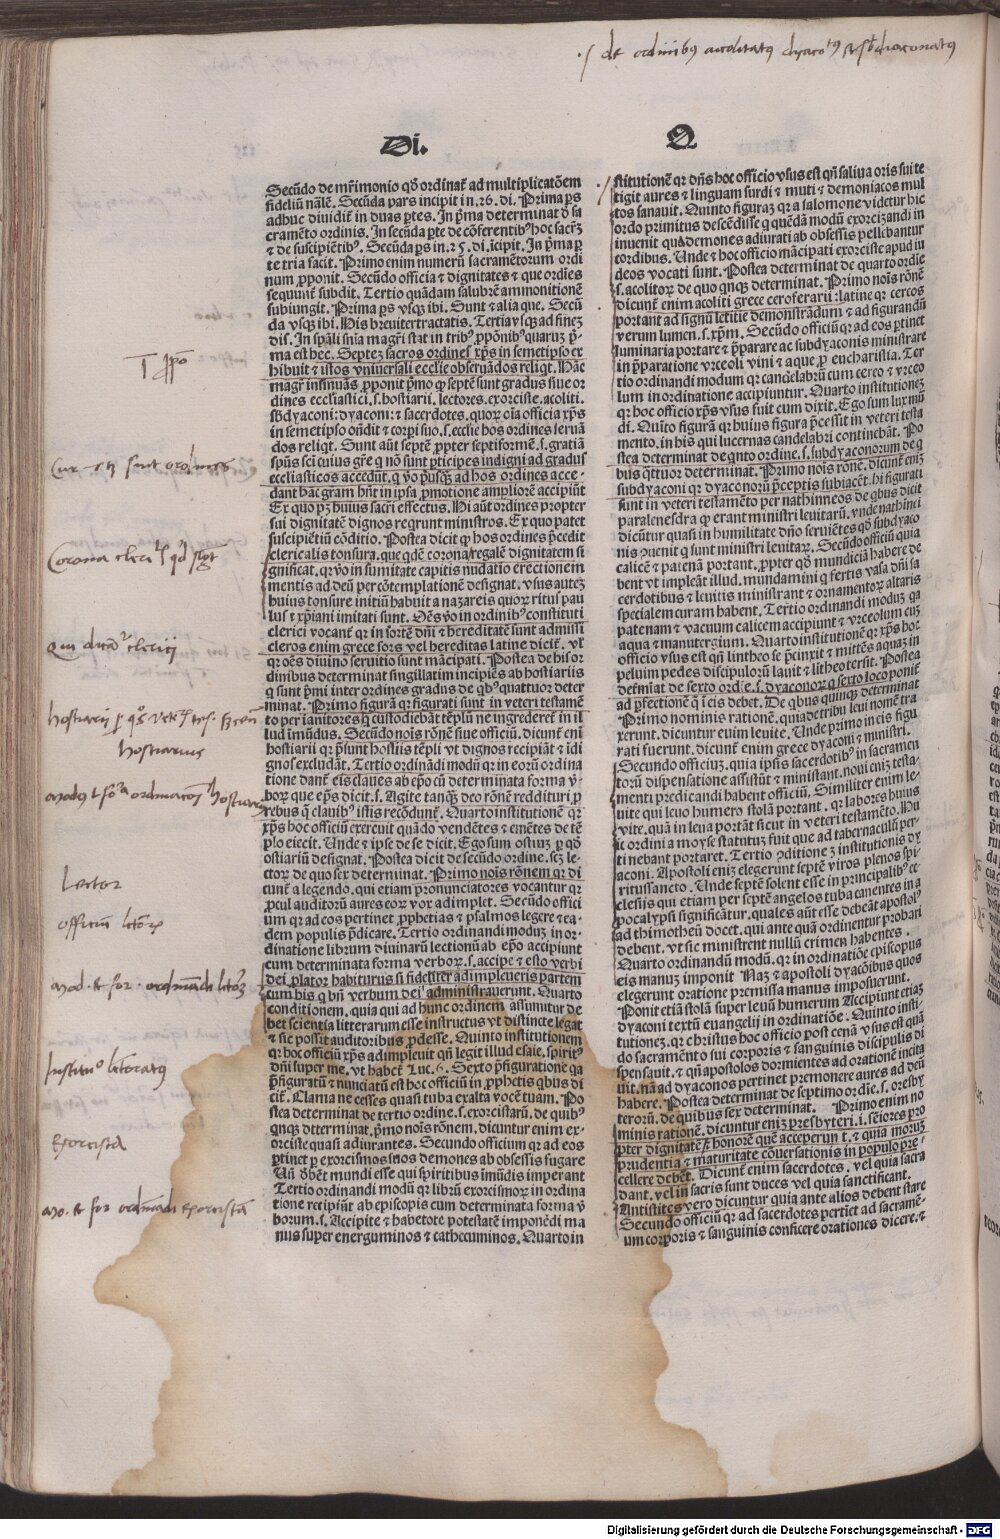 .s de ordinibus accolitatus dyaco⁹ et sb̄diaconatus
Di.
Q
Secūdo de mr̄imonio qd̄ ordinat̄ ad multiplicatōem
fideliū nālē. Secūda pars incipit in .26. di. Prima ps
adhuc diuidit̄ in duas p̄tes. In p̄ma determinat d̄ sa
cramēto ordinis. In secūda p̄te de cōferentib⁹ hoc sacr̄m
⁊ de suscipiētib⁹. Secūda ps in .25. di. īcipit. In p̄ma par
te tria facit. Primo enim numerū sacramētorum ordi
num p̄ponit. Secūdo officia ⁊ dignitates ⁊ que ordīes
sequunt̄ subdit. Tertio quādam salubrē ammonitionē
subiungit. Prima ps vsq̄ ibi. Sunt ⁊ alia que. Secū
da vsq̄ ibi. His breuiter tractatis. Tertia vsq̄ ad finez
dis. In sp̄ali snīa magr̄i stat in trib⁹ p̄pōnib⁹ quaruz p̄
ma est hec. Septez sacros ordines xp̄s in semetipso ex
hibuit ⁊ istos vniuersali ecclie obseruādos reliqt. Hāc
magr̄ insinuās p̄ponit p̄mo q̄ septē sunt gradus siue or
dines ecclīastici .s. hostiarii. lectores. exorciste. acoliti.
sb̄dyaconi: dyaconi: ⁊ sacerdotes. quorz oīa officia xp̄s
in semetipso ondit ⁊ corpi suo .s. ecclie hos ordines seruā
dos reliqt. Sunt aūt septē p̄pter septiformē .s. gratiā
spūs scī cuius gr̄e q nō sunt p̄ticipes indigni ad gradus
ecclīasticos accedūt. q vō p̄usq̄ ad hos ordines acce
dant hāc gram hn̄t in ipsa p̄motione ampliorē accipiūt
Ex quo pz huius sacri effectus. Hi aūt ordines propter
sui dignitatē dignos reqrunt ministros. Ex quo patet
suscipiētiū cōditio. Postea dicit q̄ hos ordines p̄cedit
clericalis tonsura. que qdē corona regalē dignitatem si
gnificat. qr vō in sumitate capitis nudatio erectionem
mentis ad deū per cōtemplationē designat. vsus autez
huius tonsure initiū habuit a nazareis quorz ritus pau
lus ⁊ xp̄iani imitati sunt. Oēs vō in ordinib⁹ constituti
clerici vocant̄ qr in sortē dn̄i ⁊ hereditatē sunt admissi
cleros enim grece sors vel hereditas latine dicit̄. vl
qr oēs diuino seruitio sunt mācipati. Postea de his or
dinibus determinat singillatim incipiēs ab hostiariis
q sunt p̄mi inter ordines gradus de qb⁹ quattuor deter
minat. Primo figurā qr figurati sunt in veteri testamē
to per ianitores q custodiebāt tēplū ne ingrederet̄ in il
lud imūdus. Secūdo nois rōnē siue officiū. dicunt̄ enī
hostiarii qr p̄sunt hostiis tēpli vt dignos recipiāt ⁊ idi
gnos excludāt. Tertio ordināndi modū qr in eorū ordina
tione dant̄ eis claues ab epō cū determinata forma v̄
borz que eps dicit .s. Agite tanq̄ deo rōnē reddituri p
rebus q clauib⁹ istis recōdunt̄. Quarto institutionē qr
xp̄s hoc officiū exercuit quādo vendētes ⁊ emētes de tē
plo eiecit. Unde ⁊ ipse de se dicit. Ego sum ostiuz p qd̄
ostiariū designat. Postea dicit de secūdo ordine. sez le
ctorz de quo ser determinat. Primo nois rōnem qr di
cunt̄ a legendo. qui etiam pronunciatores vocantur qr
p̄cul auditorū aures eorz vox adimplet. Secūdo offici
um qr ad eos pertinet p̄phetias ⁊ psalmos legere ⁊ ea
dem populis p̄dicare. Tertio ordinandi modus in or
dinatione librum diuinarū lectionū ab epō accipiunt
cum determinata forma verborz .s. accipe ⁊ esto verbi
dei p̄lator habiturus si fideliter adimpleueris partem
cum his q bn̄ verbum dei administrauerunt. Quarto
conditionem. quia qui ad hunc ordinem assumitur de
bet scientia litterarum esse instructus vt distincte legat
⁊ sic possit auditoribus p̄desse. Quinto institutionem
qr hoc officiū xp̄s adimpleuit qn̄ legit illud esaie. spirit⁹
dn̄i super me. vt habet̄ Luc .6. Sexto p̄figuratione qa
p̄figuratū ⁊ nunciatū est hoc officiū in p̄phetis qbus di
cit̄. Clama ne cesses quasi tuba exalta vocē tuam. Po
stea determinat de tertio ordine .s. exorcistarū. de quib⁹
qnq̄ determinat. p̄mo nois rōnem. dicuntur enim ex
orciste quasi adiurantes. Secundo officium qr ad eos
p̄tinet p exorcismos suos demones ab obsessis fugare
Un̄ dēbēt mundi esse qui spiritibus imūdis imperant
Tertio ordinandi modū qr librū exorcismorz in ordina
tione recipiūt ab episcopis cum determinata forma v̄
borum .s. Accipite ⁊ habetote potestatē imponēdi ma
nus super energuminos ⁊ cathecuminos. Quarto in
stitutionē qr dn̄s hoc officio vsus est qn̄ saliua oris sui te
tigit aures ⁊ linguam surdi ⁊ muti ⁊ demoniacos mul
tos sanauit. Quinto figuraz qr a salomone videtur hic
ordo primitus descēdisse q quēdā modū exorcizandi in
inuenit quo demones adiurati ab obsessis pellebantur
cordibus. Unde ⁊ hoc officio mācipati exorciste apud iu
deos vocati sunt. Postea determinat de quarto ordīe
.s. acolitorz de quo qnq̄ determinat. Primo nois rōnē
dicunt̄ enim acoliti grece ceroferarii: latine qr cereos
portant ad signū letitie demonstrādum ⁊ ad figurandū
verum lumen .s. xp̄m. Secūdo officiū qr ad eos ptinet
luminaria portare ⁊ p̄parare ac subdyaconis ministrare
in p̄paratione vrceoli vini ⁊ aque. p̄ eucharistia. Ter
tio ordinandi modum qr candelabrū cum cereo ⁊ vrceo
lum in ordinatione accipiuntur. Quarto institutionez
qr hoc officio xp̄s vsus fuit cum dixit. Ego sum lux mū
di. Quīto figurā qr huius figura p̄cessit in veteri testa
mento. in his qui lucernas candelabri continebāt. Po
stea determinat de qnto ordine .s. subdyaconorum de q
bus quattuor determinat. Primo nois rōnē. dicunt̄ eniz
subdyaconi qr dyaconorū p̄ceptis subiacēt. hi figurati
sunt in veteri testamēto per nathinneos de qbus dicit
paralenesdra q̄ erant ministri leuitarū. vnde nathinei
dicūtur quasi in humilitate dn̄o seruiētes qd̄ subdyaco
nis conuenit q sunt ministri leuitarz. Secūdo officiū quia
calicē ⁊ patenā portant. p̄pter qd̄ mundiciā habere de
bent vt impleāt illud. mundamini q fertis vasa dn̄i sa
cerdotibus ⁊ leuitis ministrant ⁊ ornamentorz altaris
specialem curam habent. Tertio ordinandi moduz qa
patenam ⁊ vacuum calicem accipiunt ⁊ vrceolum cuz
aqua ⁊ manutergium. Quarto institutionē qr xp̄s hoc
officio vsus est qn̄ lintheo se p̄cinxit ⁊ mittēs aquaz in
peluim pedes discipulorū lauit ⁊ lītheo tersit. Postea
determiāt de sexto ordīe .s. dyaconorz q̄ sexto loco ponit̄
ad p̄fectionē q̄ ī eis debet. De qbus quinq̄ determinat
Primo nominis rationē. quia de tribu leui nomē tra
xerunt. dicuntur enim leuite. Unde primo in eis figu
rati fuerunt. dicunt̄ enim grece dyaconi ⁊ ministri.
Secundo officiuz. quia ipsis sacerdotib⁹ in sacramen
torū dispensatione assistūt ⁊ ministant. noui eniz testa
menti predicandi habent officiū. Similiter enim le
uite qui leuo humero stolā portant. qr labores huius
vite. quā in leua portāt sicut in veteri testamēto. Hu
ic ordini a moyse statutuz fuit que ad tabernaculū per
tinebant portaret. Tertio conditione z institutionis dy
aconi. Apostoli eniz elegerunt septē viros plenos spi
ritussancto. Unde septē solent esse in principalib⁹ ec
clesiis qui etiam per septē angelos tuba canentes in a
pocalypsi significātur. quales aūt esse debeāt apostol⁹
ad thimotheū docet. qui ante quā ordinentur probari
debent. vt sic ministrent nullū crimen habentes.
Quarto ordinandū modū. qr in ordinatiōe episcopus
eis manuz imponit Naz ⁊ apostoli dyacōibus quos
elegerunt oratione premissa manus imposuerunt.
Ponit etiā stolā super leuū humerum Accipiunt etiaz
dyaconi textū euangelij in ordinatiōe. Quinto insti
tutionez. qr christus hoc officio post cenā vsus est quā
do sacramēto sui corporis ⁊ sanguinis discipulis di
spensauit. ⁊ qn̄ apostolos dormientes ad orationē incita
uit. nā ad dyaconos pertinet premonere aures ad deū
habere. Postea determinat de septimo ordīe .s. presby
terorū. de quibus sex determinat. Primo enim no
minis rationē. dicuntur eniz presbyteri. i. seniores pro
pter dignitatē ⁊ honorē quē acceperun t. ⁊ quia moruz
prudentia ⁊ maturitate cōuersationis in populo pre
cellere debēt. Dicunt̄ enim sacerdotes. vel quia sacra
dant. vel in sacris sunt duces vel quia sanctificant.
Antistites vero dicuntur quia ante alios debent stare
Secundo officiū qr ad sacerdotes pertīet ad sacramē
tum corporis ⁊ sanguinis conficere orationes dicere. ⁊
Cur 7 sunt ordines
Corona clerical qd sigt
Qui dicunt clerici
hostiarius
Lector
officium lectoris
Institutio lectoratus
Exorcista
Digitalisierung gefördert durch die Deutsche Forschungsgemeinschaft - DFG